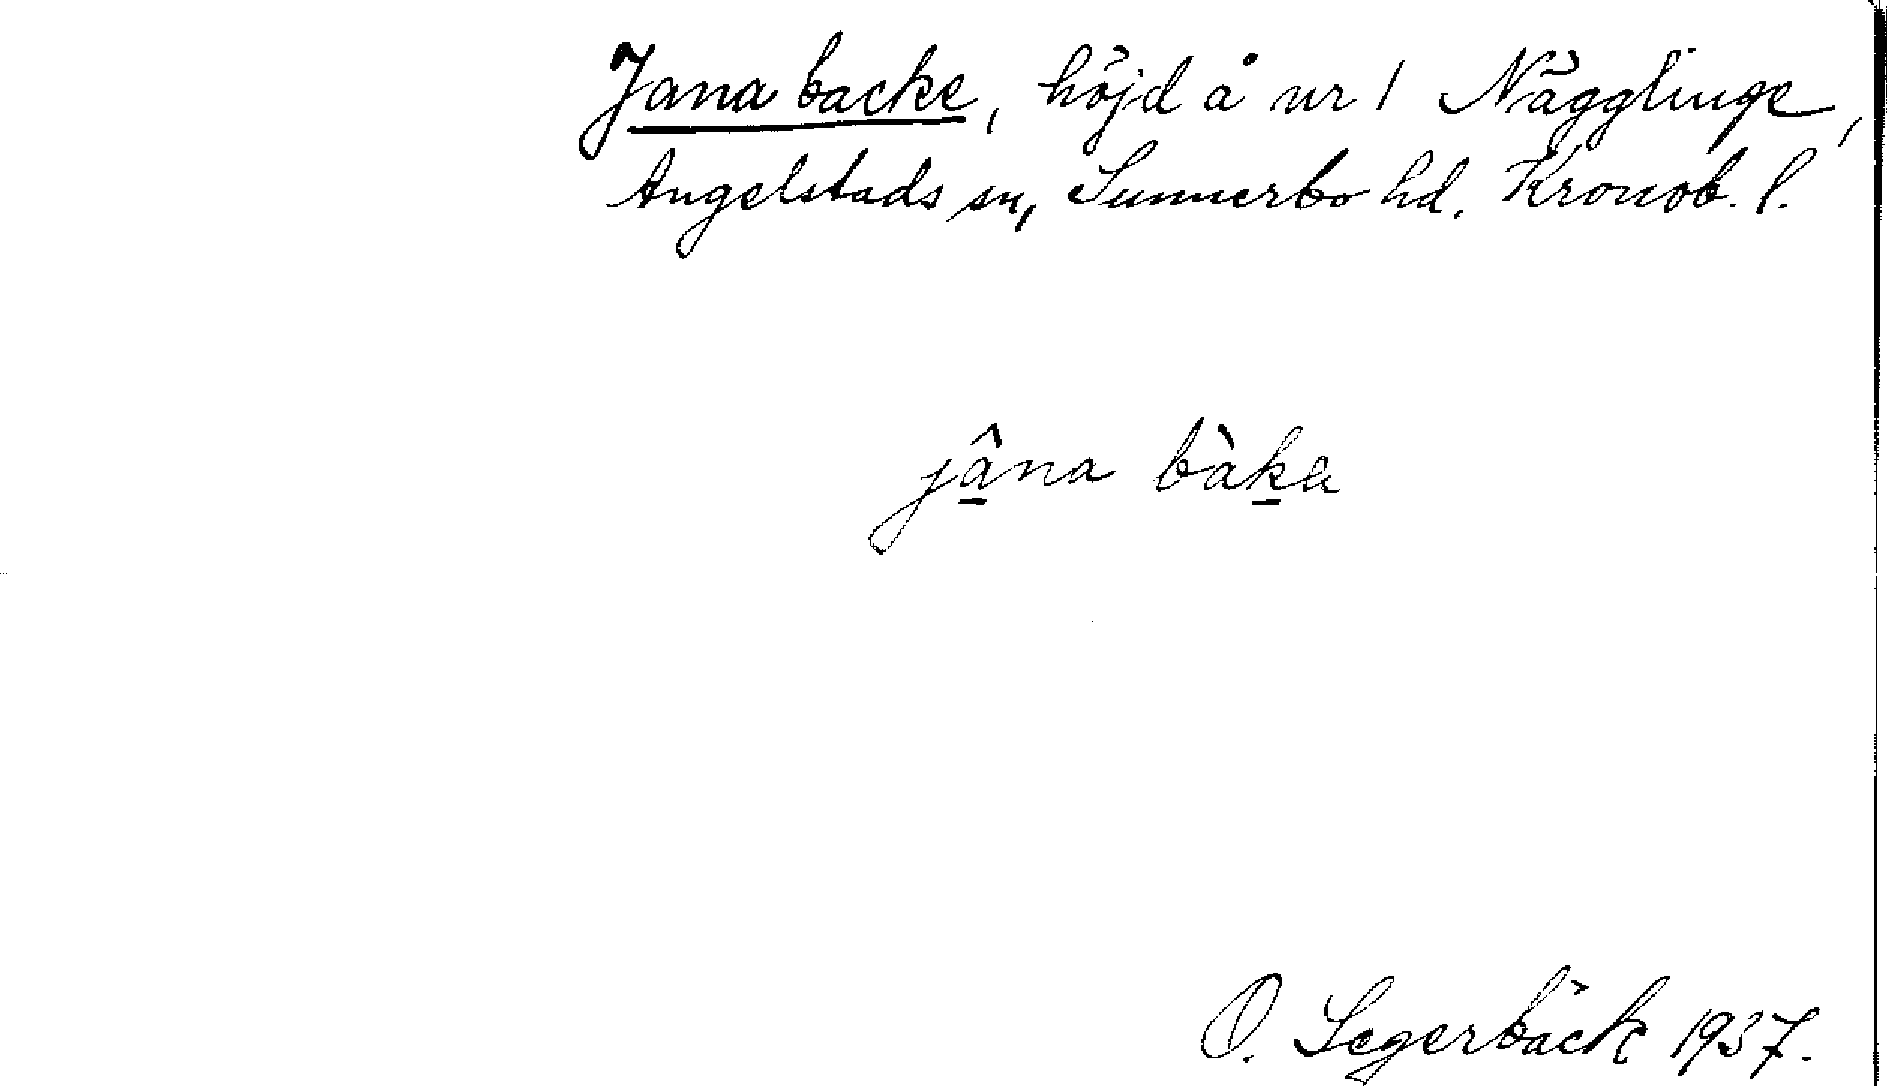 Jana backe, höjd å nr 1 Nägglinge,
Angelstads sn, Sunnerbo hd. Kronob. l.
jâ̱na bàḵa
O. Segerbäck 1937.